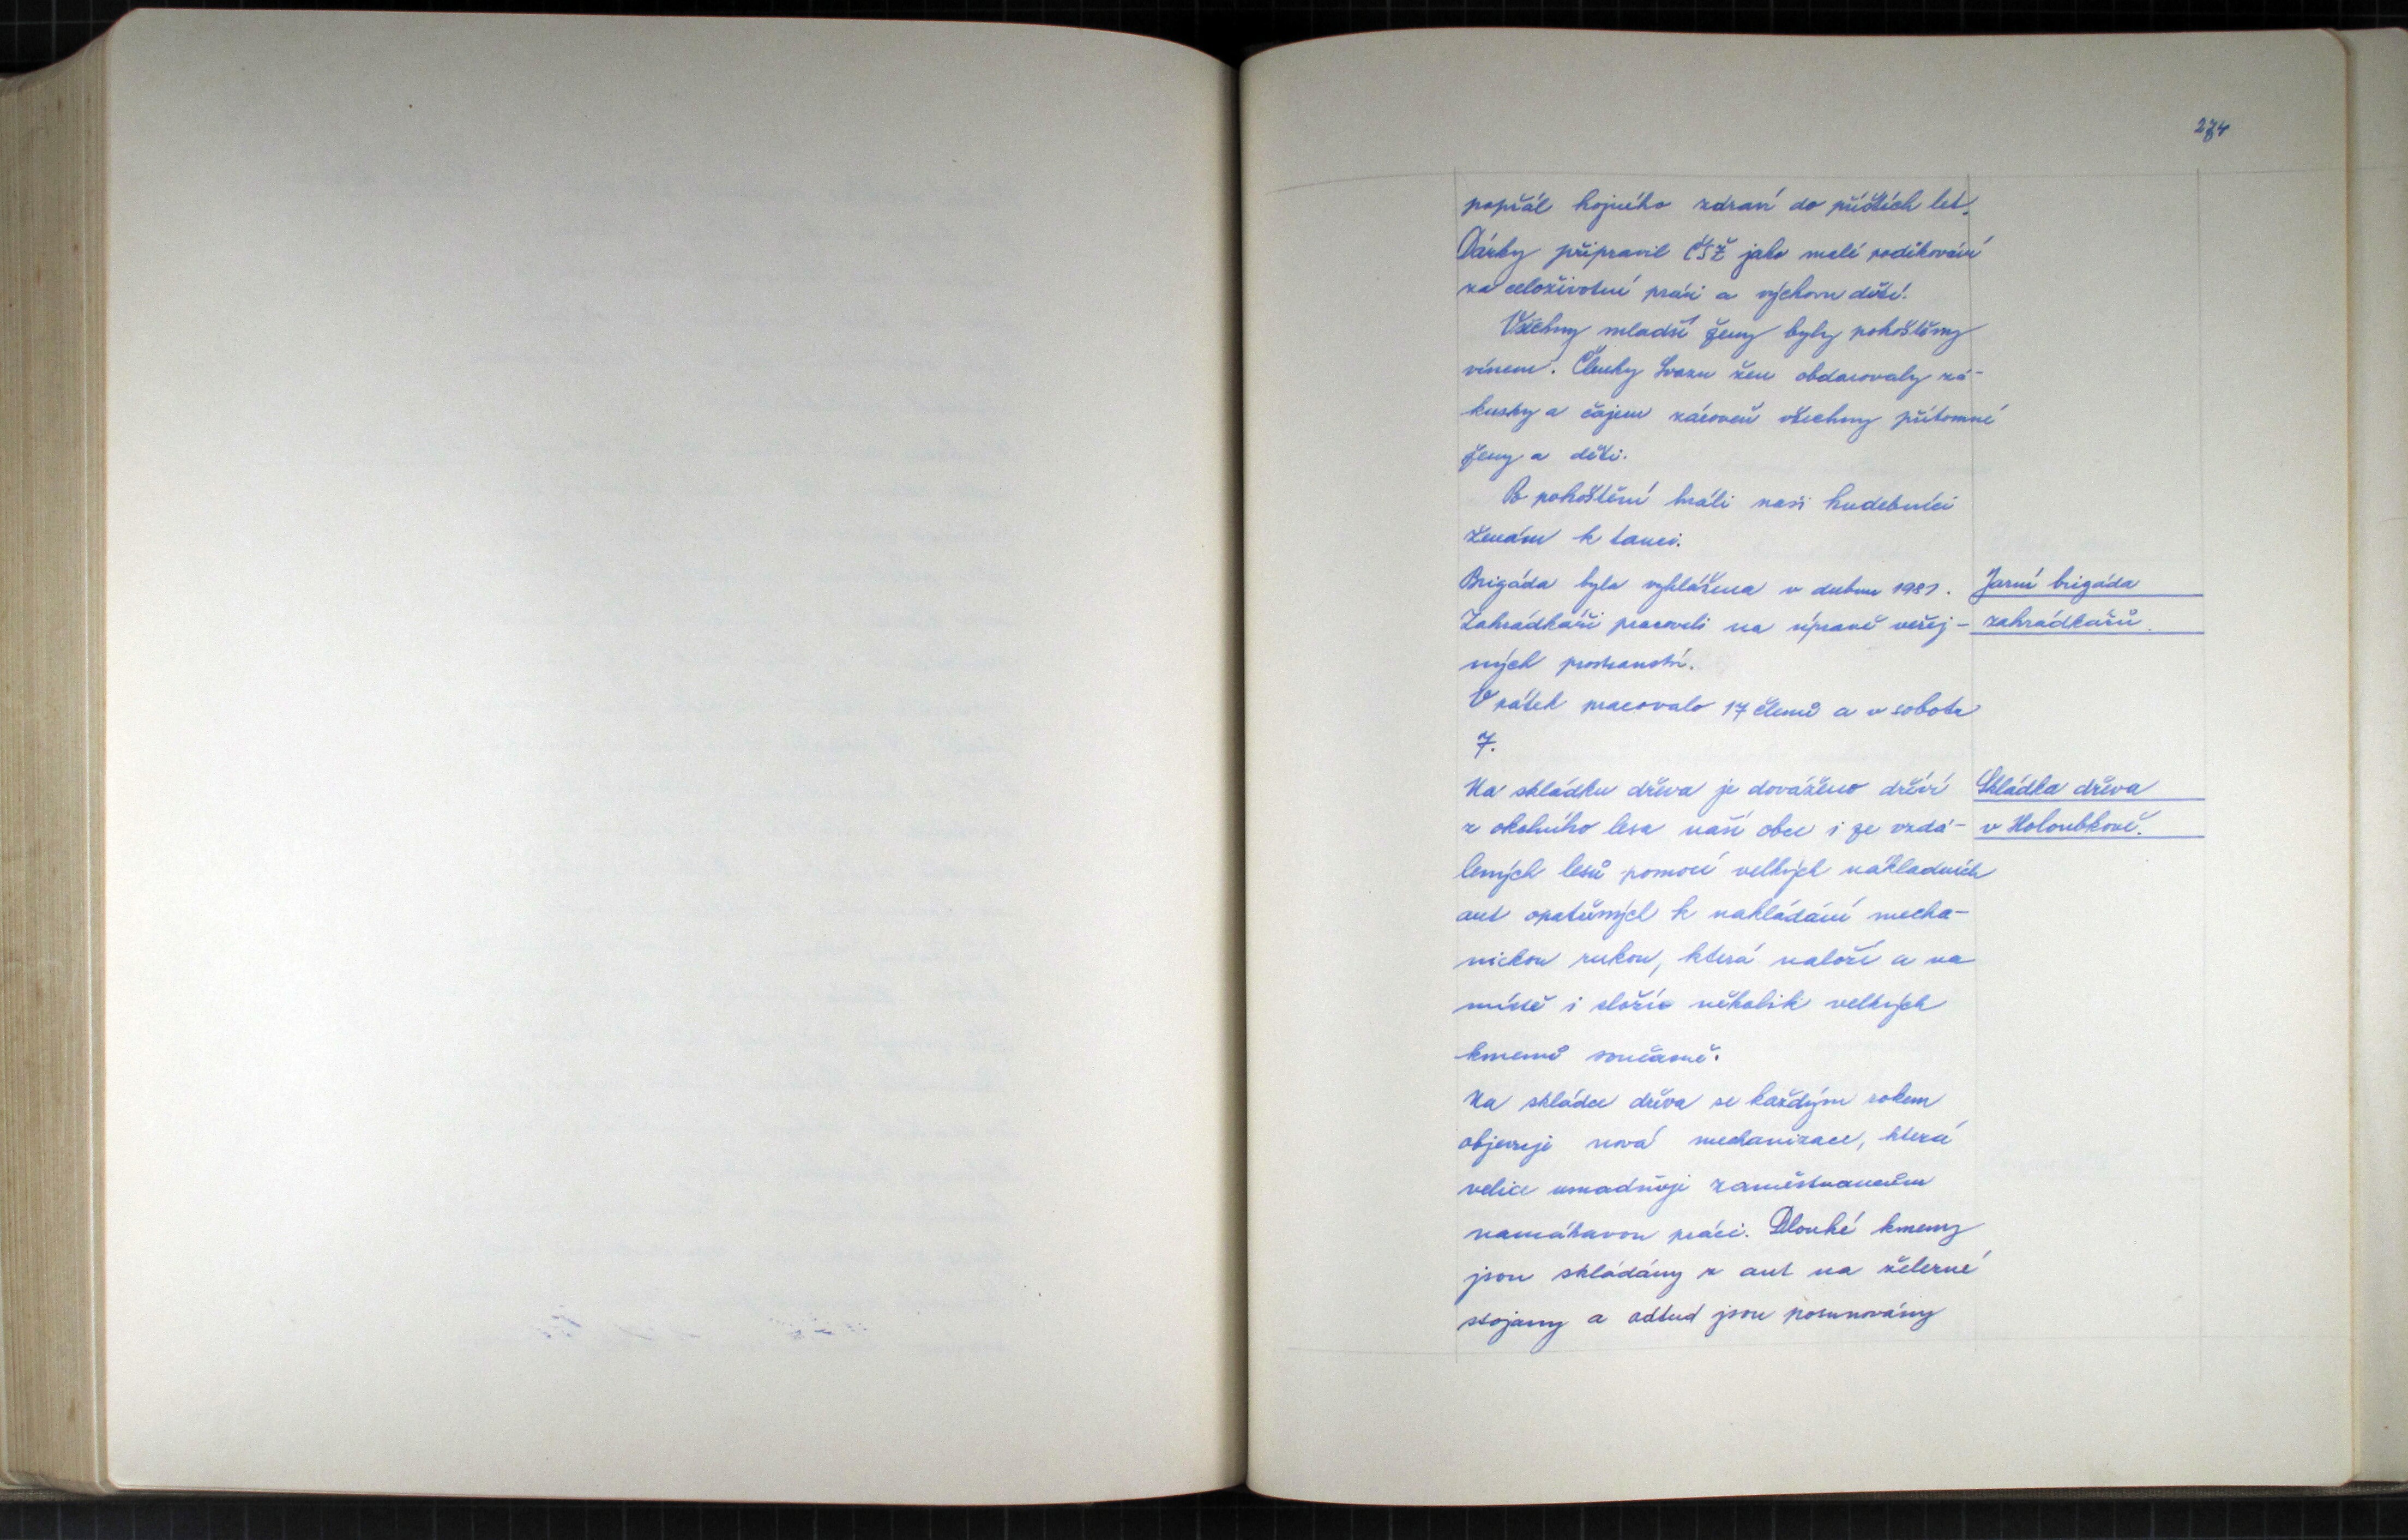 274
popřál hojného zdraví do příštích let.
Dárky připravil ČSŽ jako malé poděkování
za celoživotní práci a výchovu dětí.
Všechny mladší ženy byly pohoštěny
vínem. Členky Svazu žen obdarovaly zá-
kusky a čajem zároveň všechny přítomné
ženy a děti.
Po pohoštění hráli naši hudebníci
ženám k tanci.
Brigáda byla vyhlášena v dubnu 1981. Jarní brigáda
Zahrádkáři pracovali na úpravě veřej- zahrádkářů.
ných prostranství.
V pátek pracovalo 17 členů a v sobotu
7.
Na skládku dřeva je dováženo dříví Skládka dřeva
z okolního lesa naší obce i ze vzdá- v Holoubkově.
lených lesů pomocí velkých nákladních
aut opatřených k nakládání mecha-
nickou rukou, která naloží a na
místě i složí několik velkých
kmenů současně.
Na skládce dřeva se každým rokem
objevuje nová mechanizace, která
velice usnadňuje zaměstnancům
namáhavou práci. Dlouhé kmeny
jsou skládány z aut na železné
stojany a odtud jsou posunovány